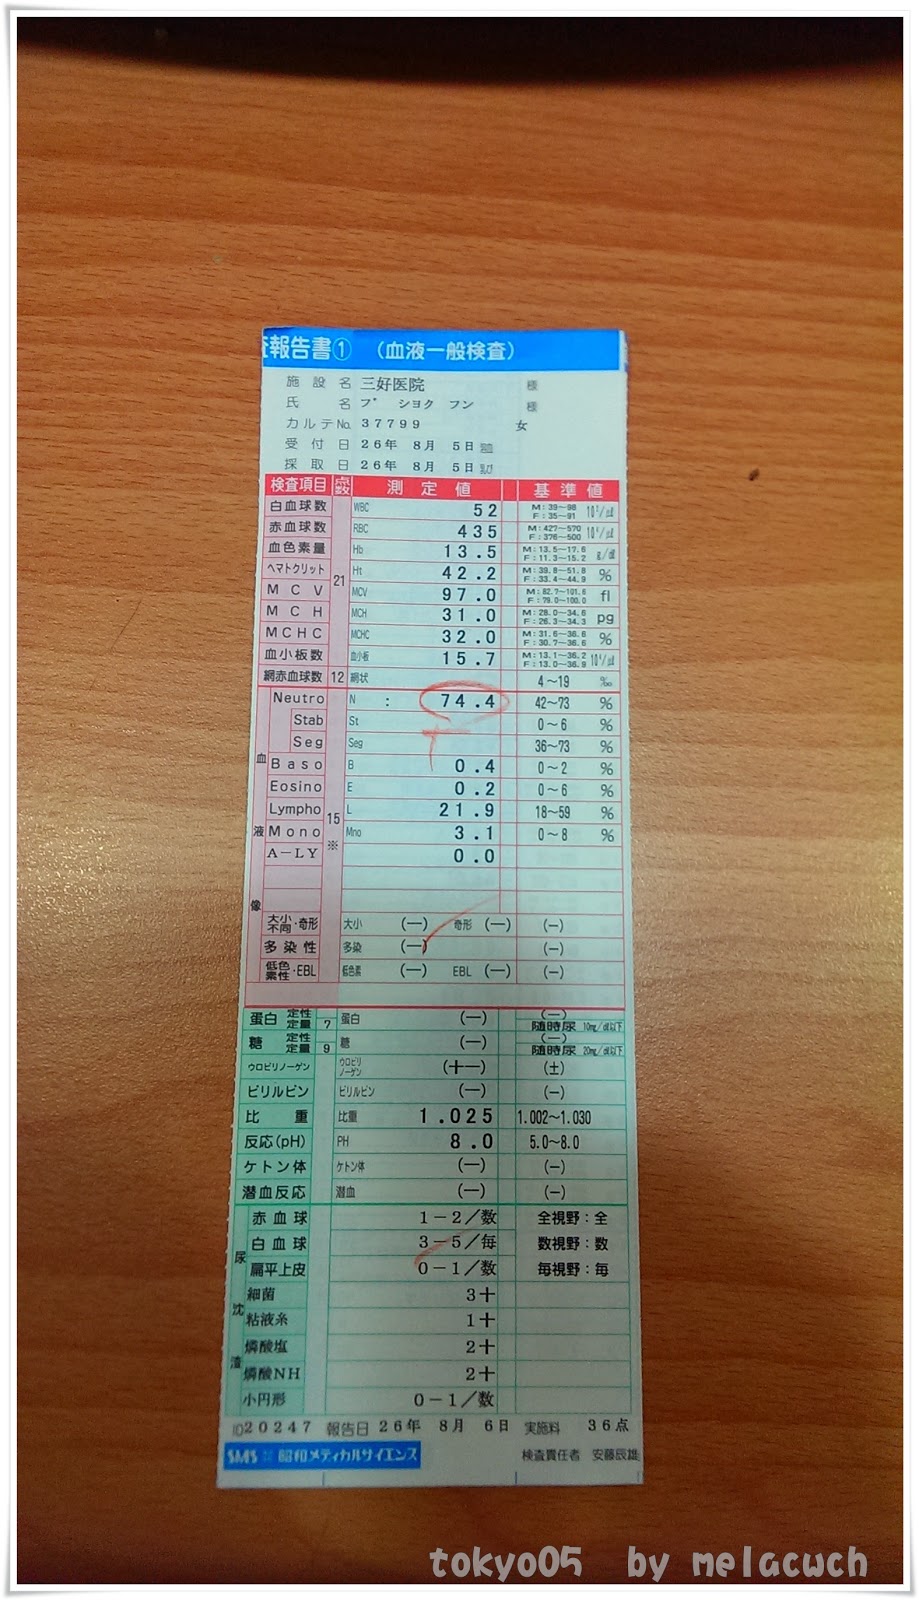 査報告書① (血液一般検査)
施設名 三好医院 様
氏名 フ゛ ショク フン 様
カルテNo. 37799 女
受付日 26年 8月 5日
採取日 26年 8月 5日
検査項目 点数 測定値 基準値
白血球数 WBC 52 M:39~98 F:35~91 10²/μl
赤血球数 RBC 435 M:427~570 F:376~500 10⁴/μl
血色素量 Hb 13.5 M:13.5~17.6 F:11.3~15.2 g/dl
ヘマトクリット Ht 42.2 M:39.8~51.8 F:33.4~44.9 %
MCV 21 MCV 97.0 M:82.7~101.6 F:79.0~100.0 fl
MCH MCH 31.0 M:28.0~34.6 F:26.3~34.3 pg
MCHC MCHC 32.0 M:31.6~36.6 F:30.7~36.6 %
血小板数 血小板 15.7 M:13.1~36.2 F:13.0~36.9 10⁴/μl
網赤血球数 12 網状 4~19 ‰
血液像 15
Neutro N : 74.4 42~73 %
Stab St 0~6 %
Seg Seg 36~73 %
Baso B 0.4 0~2 %
Eosino E 0.2 0~6 %
Lympho L 21.9 18~59 %
Mono Mno 3.1 0~8 %
A-LY 0.0
大小不同・奇形 大小 (-) 奇形 (-) (-)
多染性 多染 (-) (-)
低色素性・EBL 低色素 (-) EBL (-) (-)
蛋白 定性 定量 7 蛋白 (-) (-) 随時尿 10mg/dl以下
糖 定性 定量 9 糖 (-) (-) 随時尿 20mg/dl以下
ウロビリノーゲン ウロビリノーゲン (+-) (±)
ビリルビン ビリルビン (-) (-)
比重 比重 1.025 1.002~1.030
反応(pH) PH 8.0 5.0~8.0
ケトン体 ケトン体 (-) (-)
潜血反応 潜血 (-) (-)
尿沈渣
赤血球 1-2/数 全視野:全
白血球 3-5/毎 数視野:数
扁平上皮 0-1/数 毎視野:毎
細菌 3+
粘液糸 1+
燐酸塩 2+
燐酸NH 2+
小円形 0-1/数
ID20247 報告日 26年 8月 6日 実施料 36点
SMS 昭和メディカルサイエンス 検査責任者 安藤辰雄
tokyo05 by melacwch